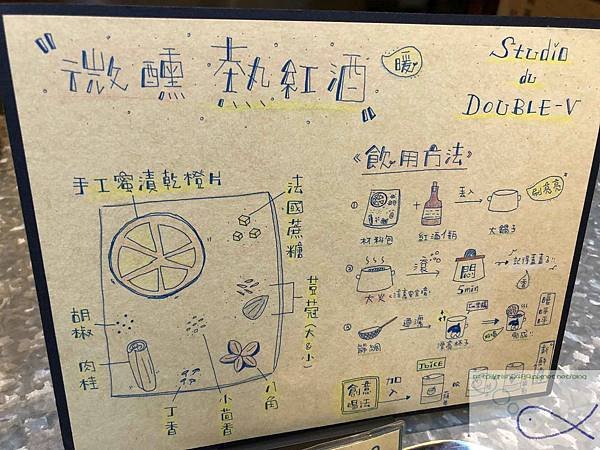 "微醺 熱紅酒"
暖
Studio
du
DOUBLE-V
手工蜜漬乾橙片
法國蔗糖
荳蔻(大&小)
胡椒
肉桂
丁香
小茴香
八角
《飲用方法》
①
材料包
+
紅酒1瓶
丟入
大鍋子
②
大火
滾
悶
5min
記得蓋蓋子!!
③
篩網
過濾
完成
創意
喝法
加入
JUICE